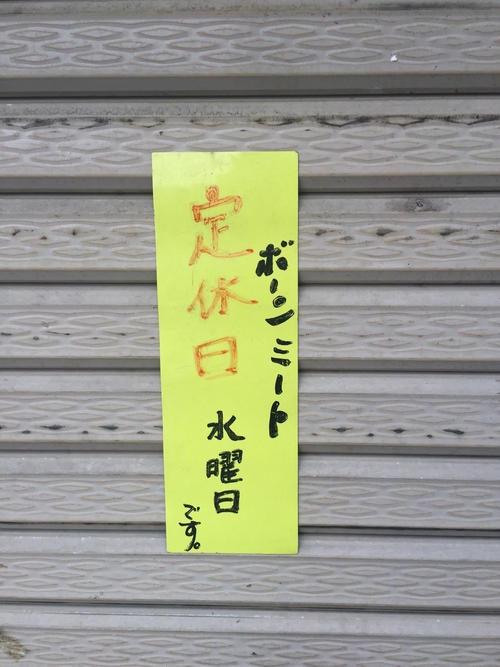 ボーンミート
定休日
水曜日
です。